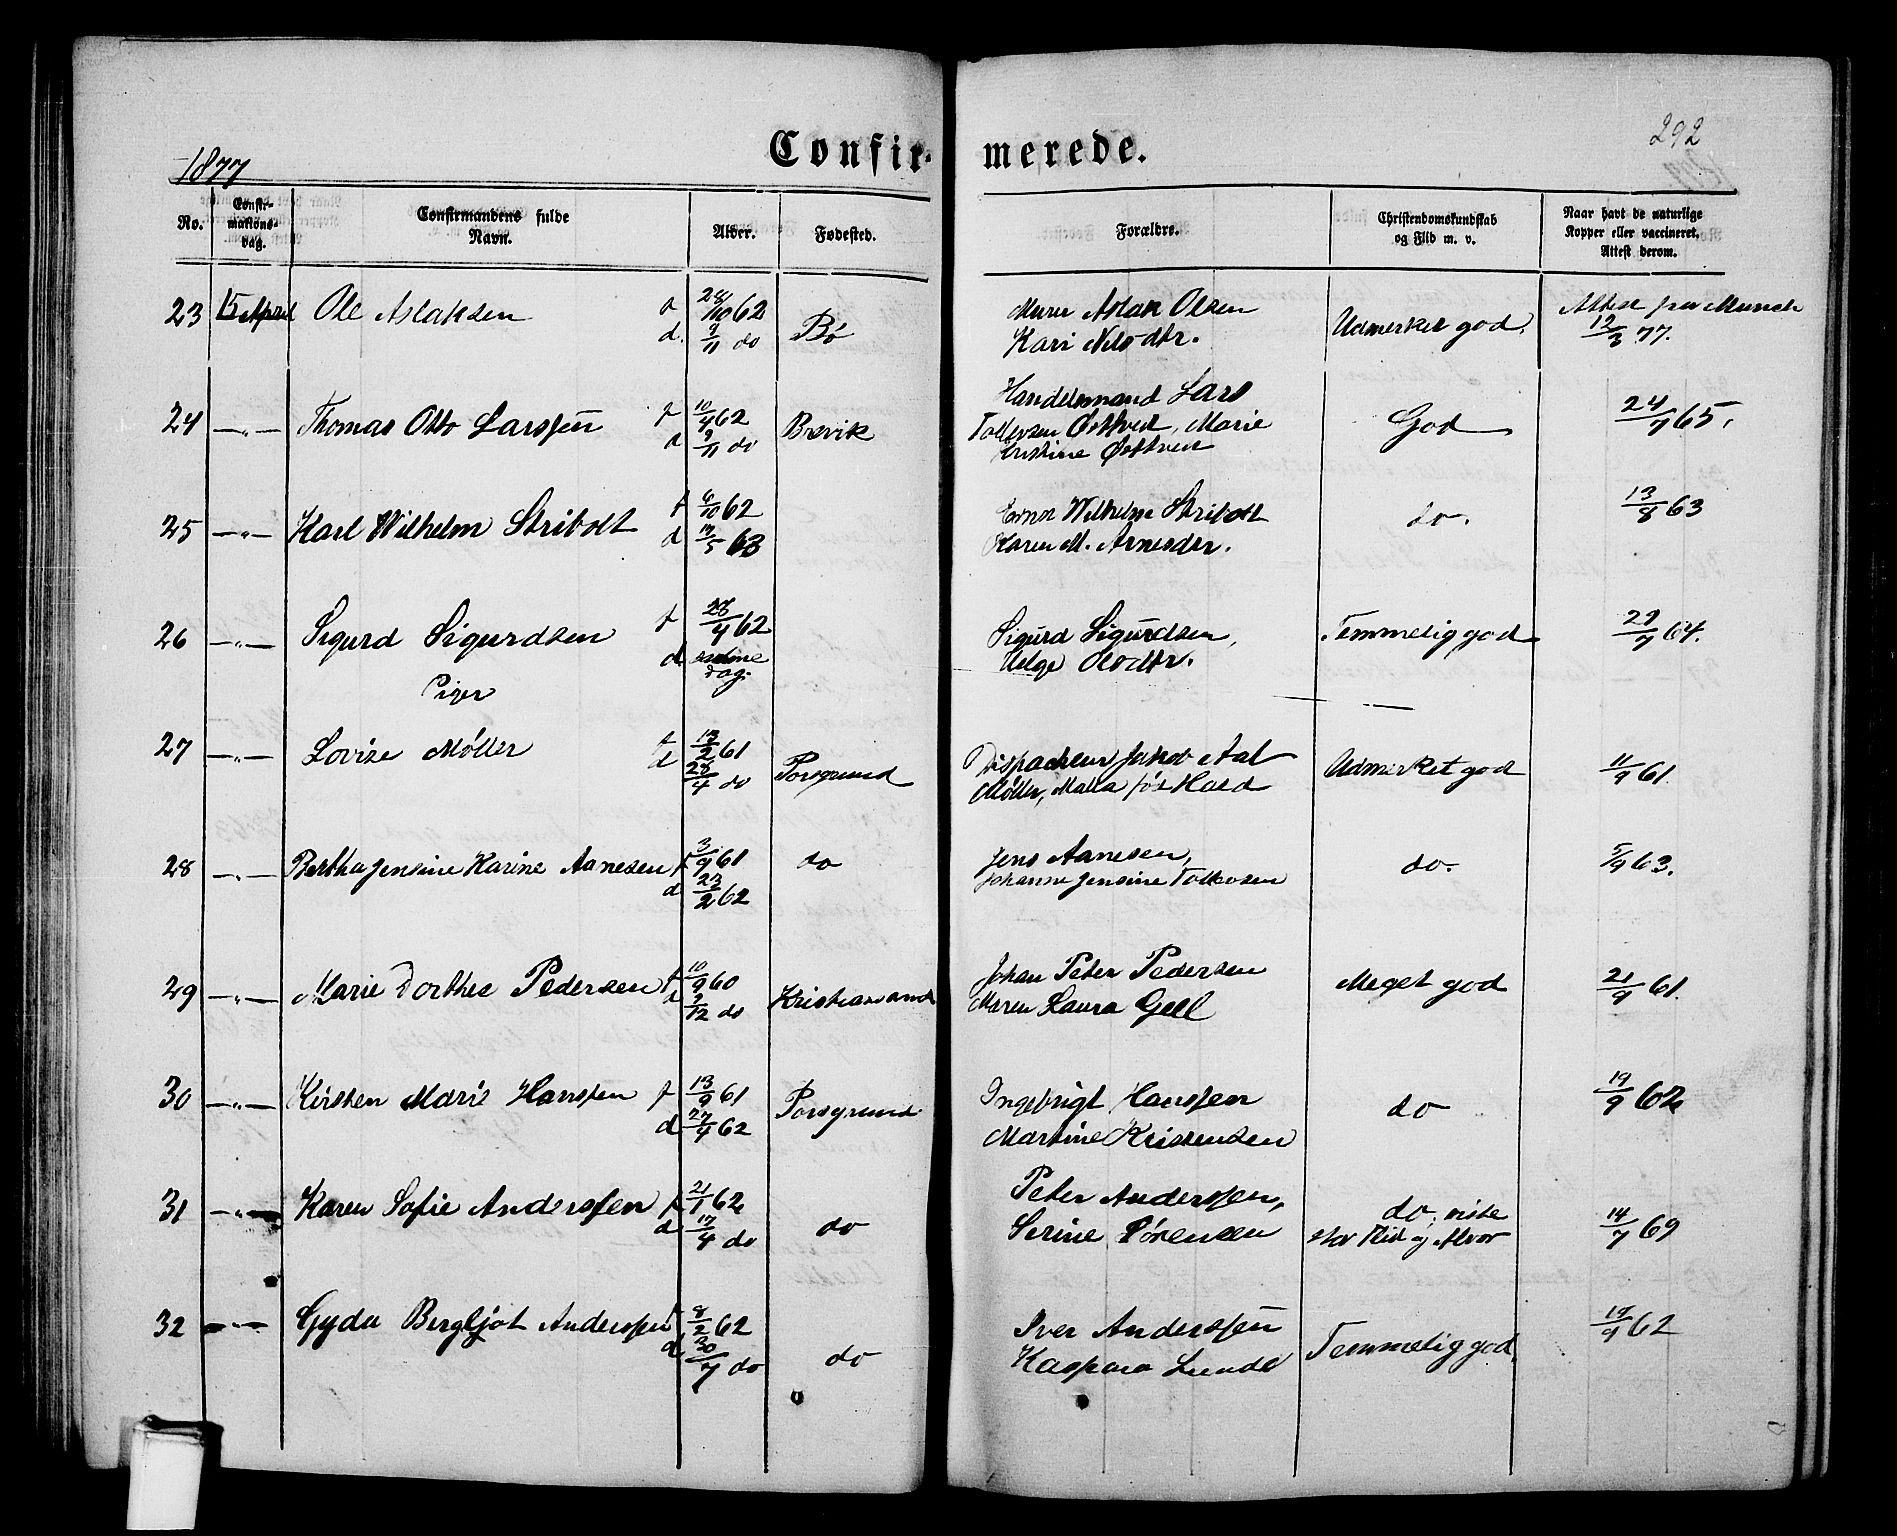 Confir- merede.
292
1877
No. Confir-mations-dag. Confirmandens fulde Navn. Alder. Fødested. Forældre. Christendomskundskab og Flid m. v. Naar havt de naturlige Kopper eller vaccineret, Attest derom.
23 15 April Ole Aslaksen f 28/10 62 d. 9/11 do Bø
Murer Aslak Olsen
Kari Nilsdtr. Udmerket god. Attest fra Munch 12/3 77.
24 —"— Thomas Otto Larssen f 10/4 62 d 9/11 do Brevik
Handelsmand Lars
Tollefsen Østtvedt, Marie
Kristine Østtvedt God 24/7 65.
25 —"— Karl Wilhelm Stribolt f 6/10 62 d 17/5 63
Wilhelm Stribolt
Karen M. Arnesdtr. do. 13/8 63
26 —"— Sigurd Sigurdsen f 26/4 62 d samme dag.
Sigurd Sigurdsen,
Helge Olsdtr. Temmelig god 29/7 64.
Piger
27 —"— Lovise Møller f 13/2 61 d 28/4 do Porsgrund
Dispacheur Jakob Aal
Møller, Malla fød Hald Udmerket god 11/9 61.
28 —"— Bertha Jensine Karine Aanesen f 3/9 61 d 23/2 62 do
Jens Aanesen,
Johanne Jensine Tollevsen do. 5/9 63.
29 —"— Marie Dorthee Pedersen f 10/9 60 d 9/12 do Kristiansand
Johan Peter Pedersen
Maren Laura Gell Meget god 21/9 61.
30 —"— Kirsten Marie Hanssen f 13/9 61 d 27/4 62 Porsgrund
Ingebrigt Hanssen
Martine Kristensen do 19/9 62
31 —"— Karen Sofie Anderssen f 21/1 62 d 17/4 do do
Peter Anderssen,
Serine Sørensen do, viste
stor Flid og Alvor 14/7 69
32 —"— Gyda Bergljot Anderssen f 8/2 62 d 20/7 do do
Iver Anderssen
Kaspara Lunde Temmelig god. 19/9 62